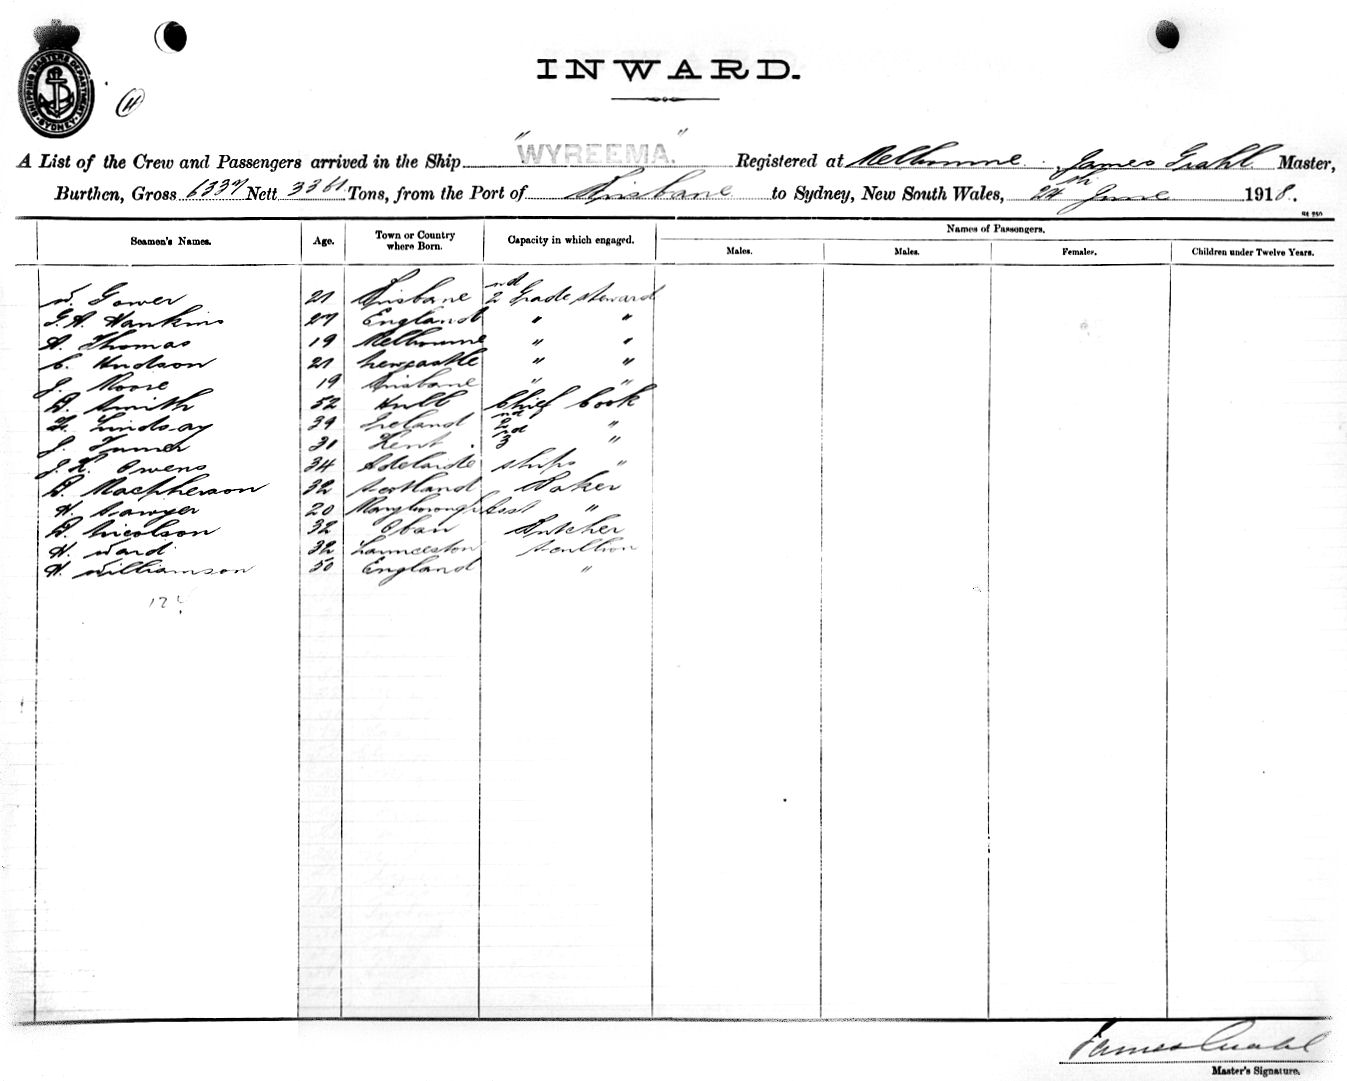 SHIPPING MASTERS DEPARTMENT
SYDNEY
INWARD.
A List of the Crew and Passengers arrived in the Ship "WYREEMA." Registered at Melbourne. James Grahl Master,
Burthen, Gross 6337 Nett 3361 Tons, from the Port of Brisbane to Sydney, New South Wales, 24th June 1918.
Names of Passengers.
Seamen's Names. Age. Town or Country where Born. Capacity in which engaged. Males. Males. Females. Children under Twelve Years.
W. Gower 21 Brisbane 2nd Grade steward
G. A. Hankins 27 England " "
A. Thomas 19 Melbourne " "
C. Hudson 21 Newcastle " "
J. Moore 19 Brisbane " "
D. Smith 52 Hull Chief Cook
Lindsay 39 Ireland 2nd "
J. Turner 31 Kent 3rd "
J. L. Owens 34 Adelaide ships "
D. Macpherson 32 Scotland Baker
H. Sawyer 20 Maryborough Asst "
D. Nicolson 32 Oban Butcher
H. Ward 32 Launceston Scullion
H. Williamson 50 England "
James Grahl
Master's Signature.